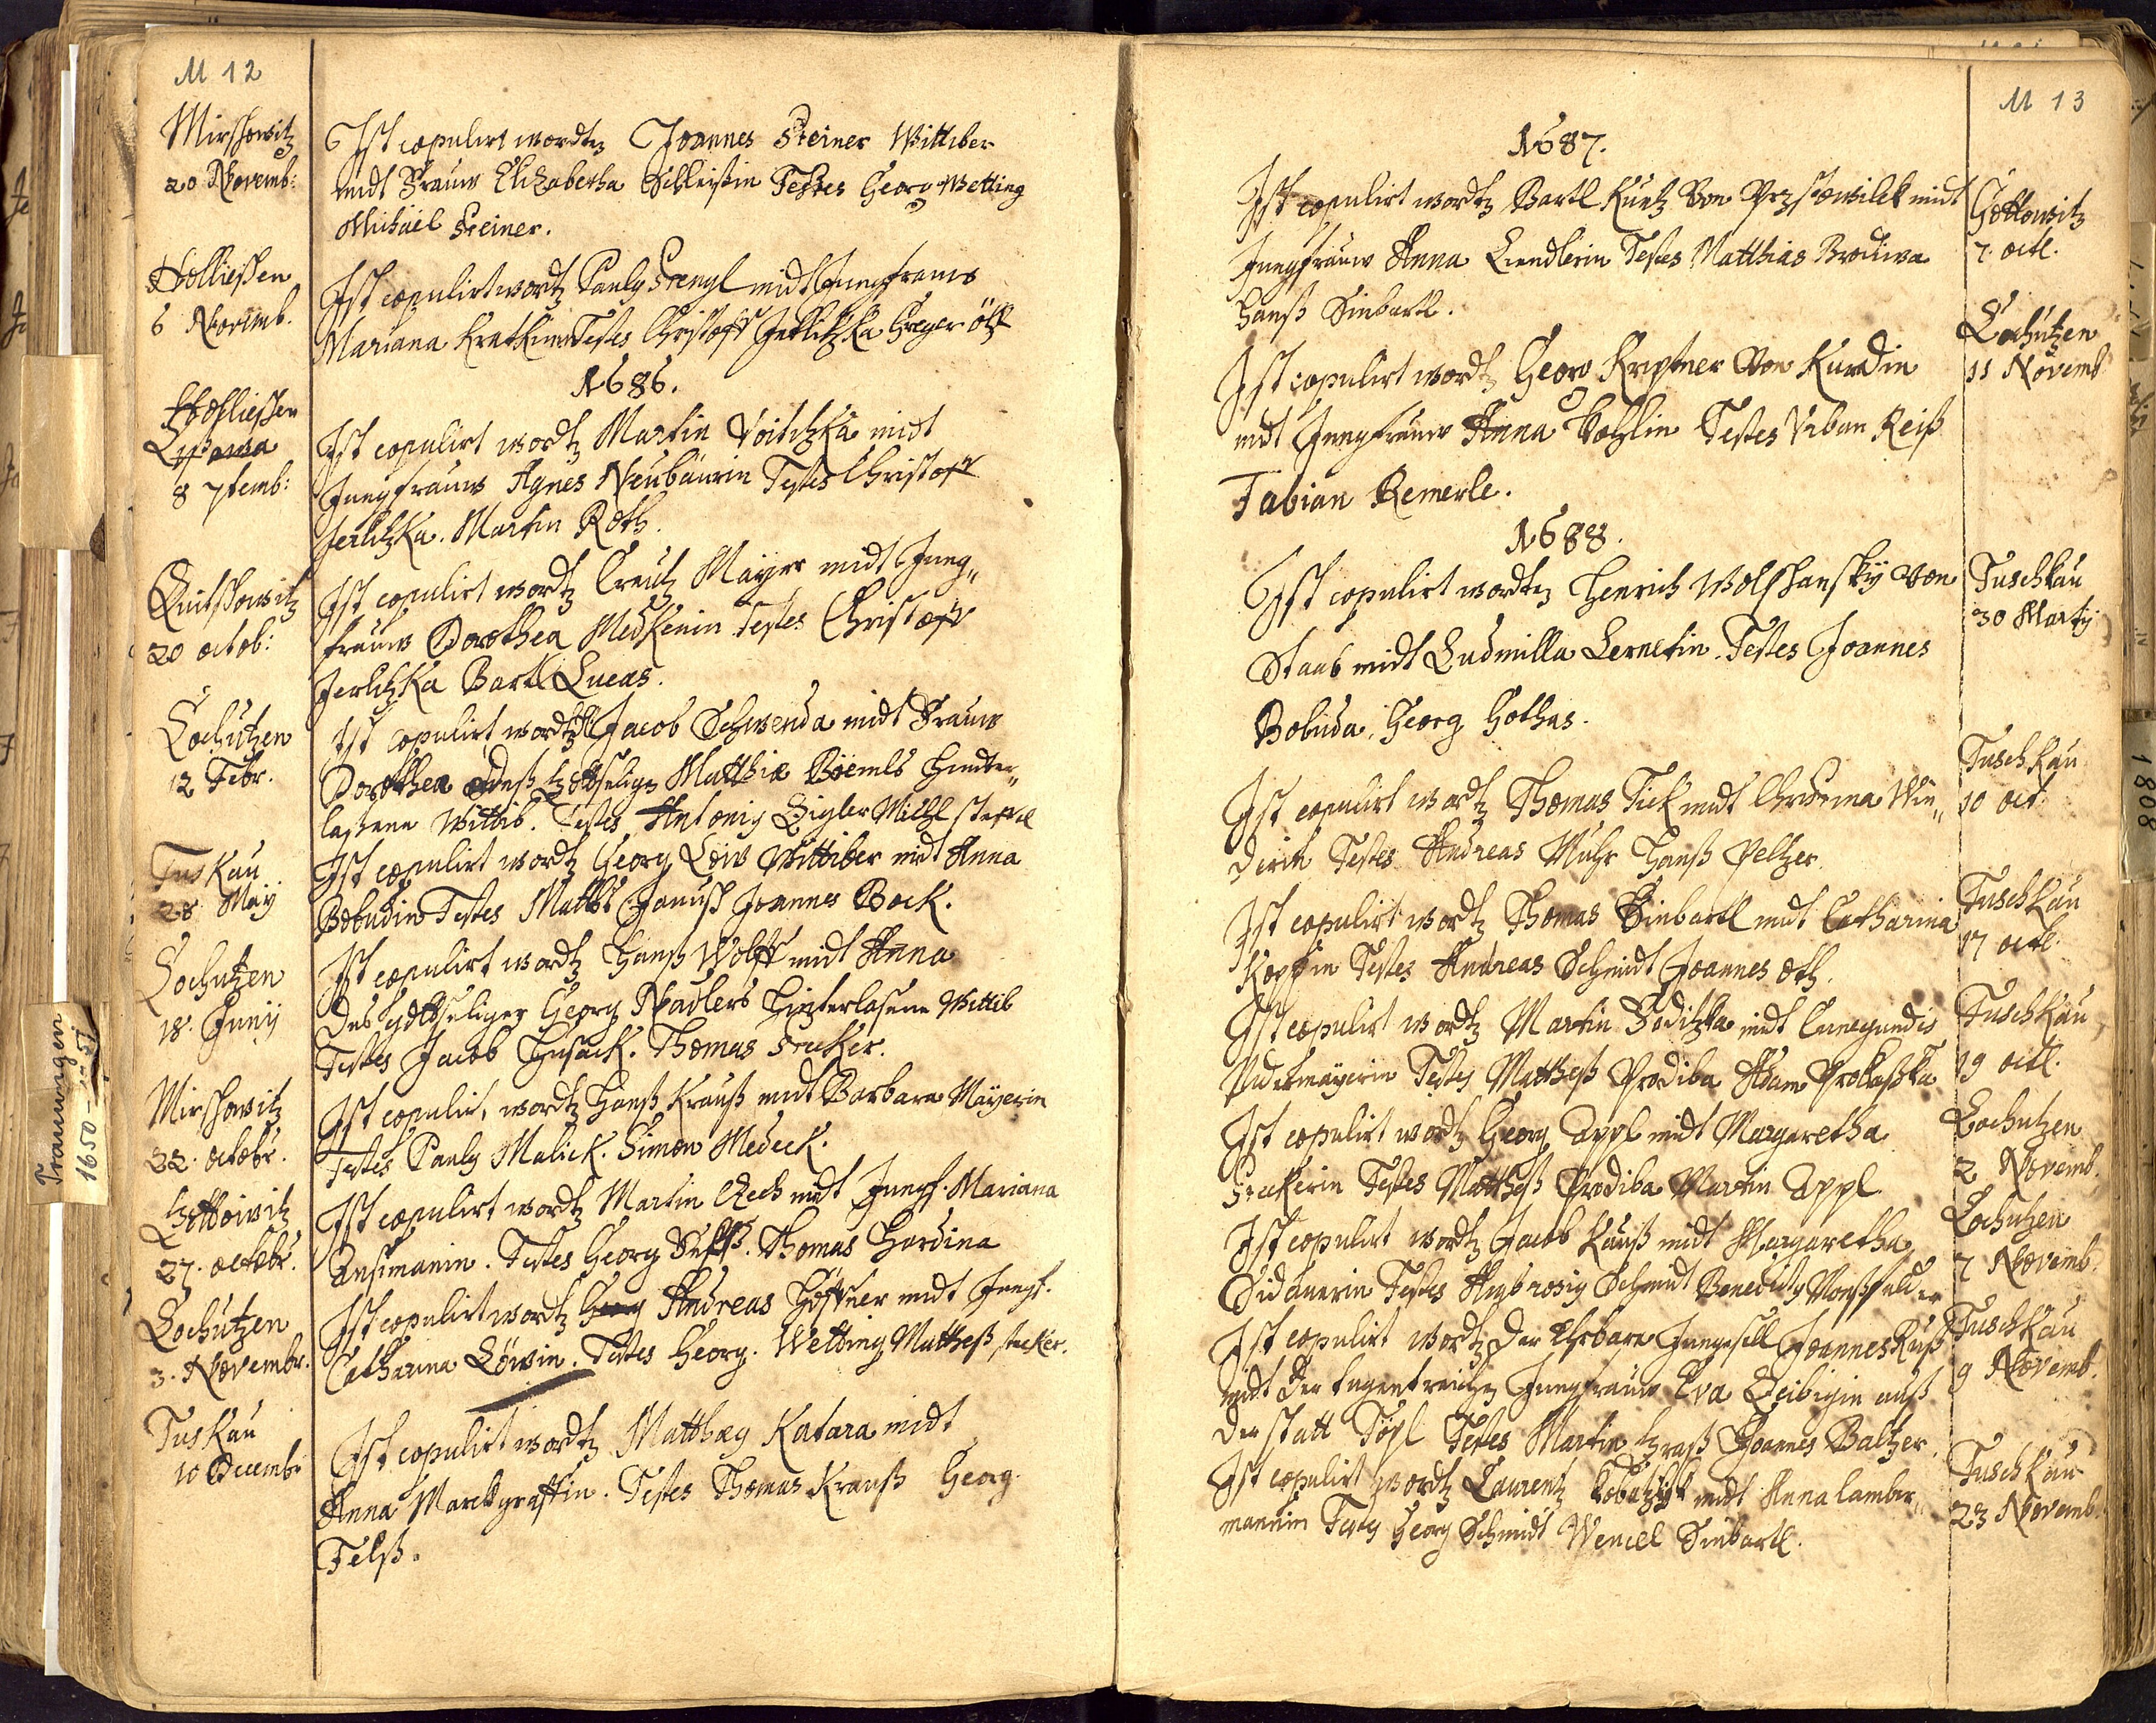 M 12
Mirschowitz
20 Novemb:
Ist copulirt worden Joannes Steiner Wittiber
midt Frauw Elizabetha Schleißin Testes Georg Wetting
Michäel Steiner.
Hollieschen
6 Novemb.
Ist copulirt worden Pauly Stengl midt Jungfrauw
Mariana Testes Christoff Jerlitzka Greger
1686.
Hollieschen
8 7temb:
Ist copulirt worden Martin Voitizka midt
Jungfrauw Agnes Neubäurin Testes Christoff
Jerlitzka. Martin Roth.
Quitschowitz
20 octob:
Ist copulirt worden Creutz Mayer midt Jung„
frauw Dorothea Medkenin Testes Christoff
Jerlitzka Bartl Lucas.
Lochutzen
12 Febr.
Ist copulirt worden Jacob Schwenda midt Frauw
Dorothea deß gottseligen Matthiæ Böemls hinter„
laßene Wittib. Testes Antonig Zigler Michl
Tuskau
28 May
Ist copulirt worden Georg Löw Wittiber midt Anna
Bobudin Testes Matthes Janusch Joannes Bock.
Lochutzen
18. Junij
Ist copulirt worden Hanß Wolff midt Anna
des gottseligen Georg Nadlers hinterlasene Wittib
Testes Jacob Husack. Thomas Stecker.
Mirschowitz
22. octobr.
Ist copulirt worden Hanß Krauß midt Barbara Mayerin
Testes Pauly Malick. Simon Medeck.
Gottowitz
27. octobr.
Ist copulirt worden Martin Zech midt Jungf. Mariana
Ansimanin. Testes Georg Thomas Hardina
Lochutzen
3. Novembr.
Ist copulirt worden Georg Andreas Höffner midt Jungf.
Catharina Löwin. Testes Georg. Wetting Mattheß stecker.
Tuskau
10 Decembr
Ist copulirt worden Matthæy Katara midt
Anna Marckgraffin. Testes Thomas Krauß Georg
Felß.
Trauungen
1650-
M 13
1687.
Ist copulirt worden Bartl Kuntz von midt
Jungfrauw Anna Lendlerin Testes Matthias Brodiwa
Hanß Sinbartl.
Gottowitz
7. octl.
Ist copulirt worden Georg Kriptner von Kuradin
midt Jungfrauw Anna Testes Urban Reiß
Fabian Remerle.
Lochutzen
11 Novemb
1688.
Ist copulirt worden Henrich Wolfshansky von
Staab midt Ludmilla Lernetin. Testes Joannes
Bobuda, Georg Hothas.
Tuschkau
30 Martij
Ist copulirt worden Thomas Tick midt Christina Win„
derin Testes Andreas Muhr Hanß Peltzer
Tuschkau
10 oct:
Ist copulirt worden Thomas Sinbartl midt Catharina
Koppin Testes Andreas Schmidt Joannes oth.
Tuschkau
17 octl.
Ist copulirt worden Martin Soditzka midt Cunegundis
Testes Mattheß Prodiba Adam Prokaßka
Tuschkau
19 octl.
Ist copulirt worden Georg Appl midt Margaretha
Steckerin Testes Mattheß Prodiba Martin Appl
Lochutzen
2 Novemb.
Ist copulirt worden Jacob Kauß midt Margaretha
Testes Ambrosig Schmidt Benedicty
Lochutzen
7 Novemb.
Ist copulirt worden der Ehrbare Junggesell Joannes Kuß
midt der tugentreichen Jungfrauw Eva Leibigin auß
der statt Töpl Testes Martin Graß Joannes Baltzer
Tuschkau
9 Novemb.
Ist copulirt worden Laurentz midt Anna Lamber„
mannin Testes Georg Schmidt Wencel Sinbartl.
Tuschkau
23 Novemb.
1808